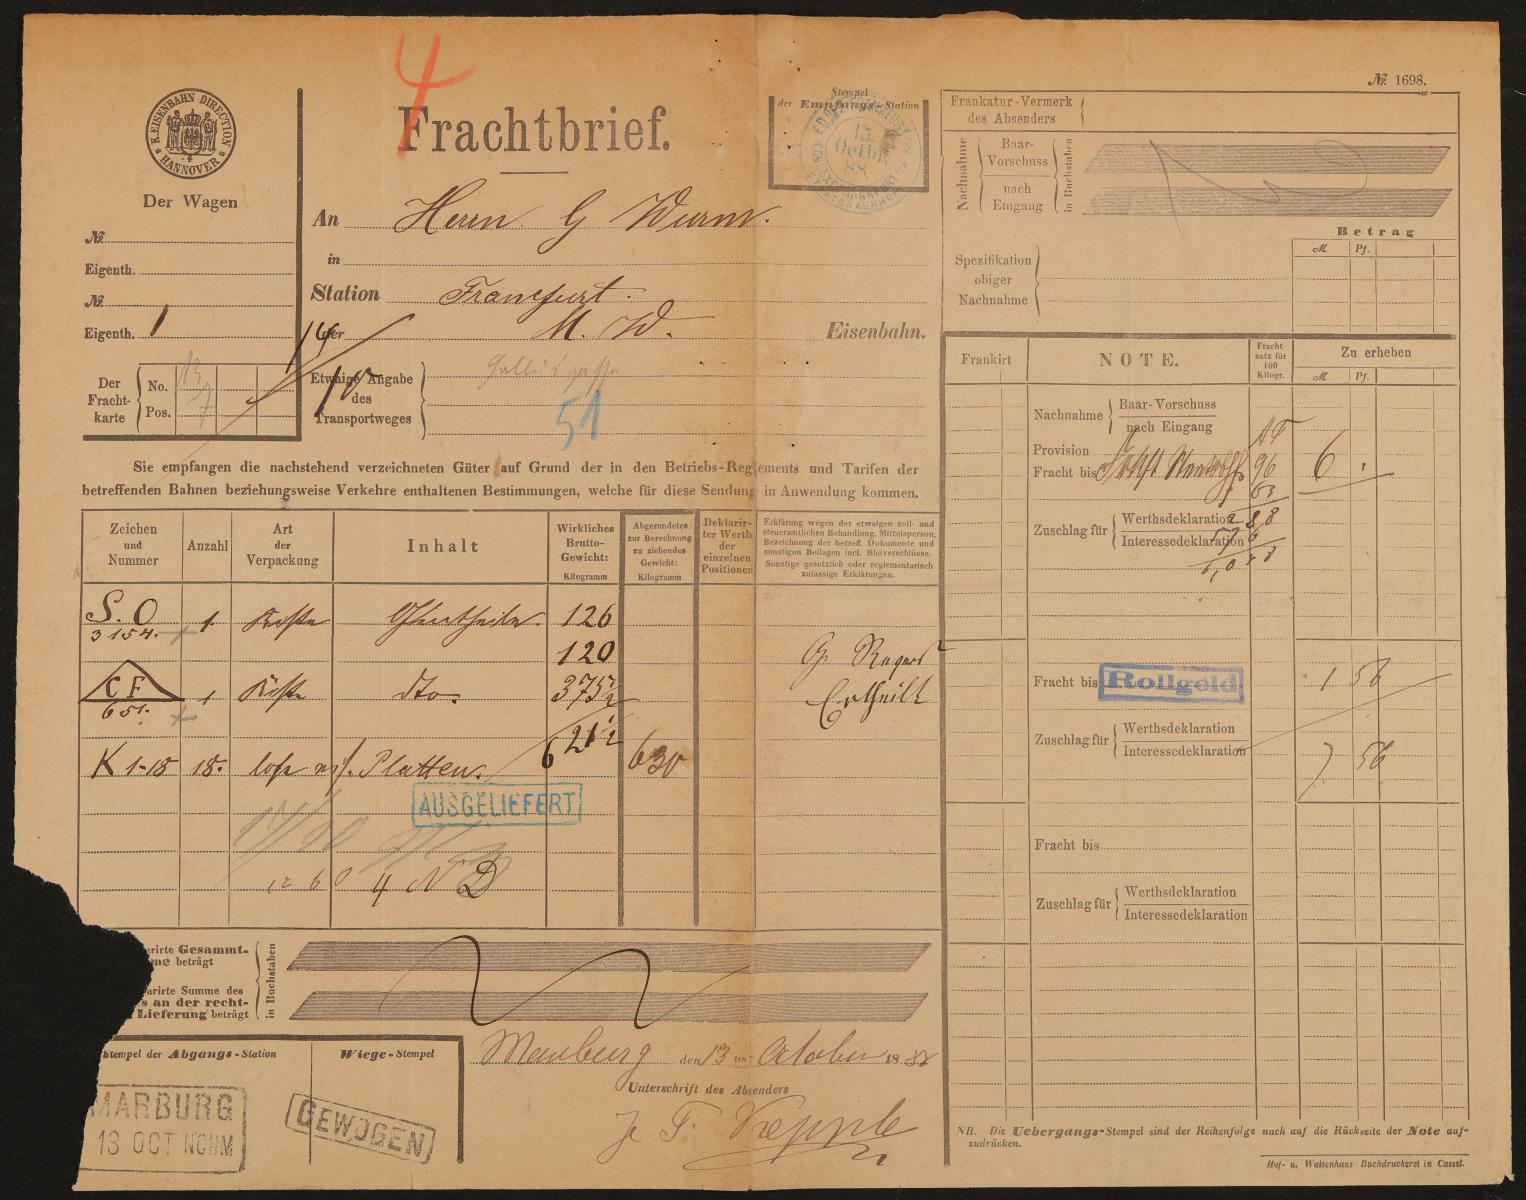 № 1698.
K. EISENBAHN DIRECTION
HANNOVER
4
Frachtbrief.
Stempel
der Empfangs-Station
15
Octbr
88
Der Wagen
№
Eigenth.
№
Eigenth. 1
Der Frachtkarte
No. 13
Pos. 7
An Herrn G Wurm.
in
Station Francfurt.
der M. W. Eisenbahn.
14
10
Etwaige Angabe
des
Transportweges
51
Sie empfangen die nachstehend verzeichneten Güter auf Grund der in den Betriebs-Reglements und Tarifen der
betreffenden Bahnen beziehungsweise Verkehre enthaltenen Bestimmungen, welche für diese Sendung in Anwendung kommen.
Zeichen
und
Nummer
Anzahl
Art
der
Verpackung
Inhalt
Wirkliches
Brutto-
Gewicht:
Kilogramm
Abgerundetes
zur Berechnung
zu ziehendes
Gewicht:
Kilogramm
Deklarir-
ter Werth
der
einzelnen
Positionen
Erklärung wegen der etwaigen zoll- und
steueramtlichen Behandlung, Mittelsperson,
Bezeichnung der betreff. Dokumente und
sonstigen Beilagen incl. Bleiverschlüsse.
Sonstige gesetzlich oder reglementarisch
zulässige Erklärungen.
S. O 1. Kiste 126
3154.
120
C F 1 Kiste dto. 375 ½
651.
621 ½
K 1-18 18. lose Platten. 630
Ertheilt
AUSGELIEFERT
4 N D
arirte Gesammt-
me beträgt
arirte Summe des
s an der recht-
Lieferung beträgt
in Buchstaben
Stempel der Abgangs-Station
Wiege-Stempel
MARBURG
13 OCT NCHM
GEWOGEN
Marburg den 13 ten October 1888
Unterschrift des Absenders
Frankatur-Vermerk
des Absenders
Nachnahme
Baar-
Vorschuss
nach
Eingang
in Buchstaben
Betrag
M. Pf.
Spezifikation
obiger
Nachnahme
Frankirt
NOTE.
Fracht-
satz für
100
Kilogr.
Zu erheben
M. Pf.
Nachnahme
Baar-Vorschuss
nach Eingang
Provision
Fracht bis 96 6
63
Zuschlag für
Werthsdeklaration
Interessedeklaration
288
Fracht bis Rollgeld 1 56
Zuschlag für
Werthsdeklaration
Interessedeklaration
7 56
Fracht bis
Zuschlag für
Werthsdeklaration
Interessedeklaration
NB. Die Uebergangs-Stempel sind der Reihenfolge nach auf die Rückseite der Note auf-
zudrücken.
Hof- u. Waisenhaus-Buchdruckerei in Cassel.